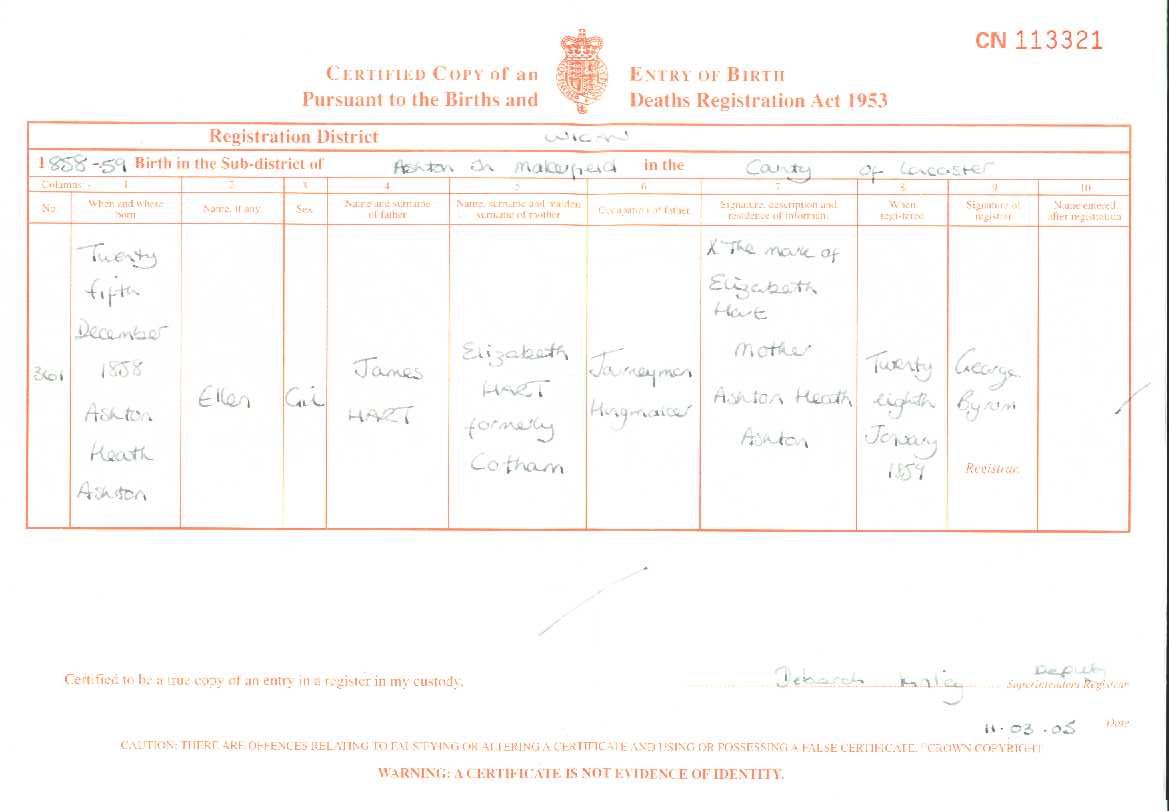 CN 113321
CERTIFIED COPY of an ENTRY OF BIRTH
Pursuant to the Births and Deaths Registration Act 1953
Registration District WIGAN
1858-59 Birth in the Sub-district of Ashton In Makerfield in the County of Lancaster
Columns:- 1 2 3 4 5 6 7 8 9 10
No. When and where born Name, if any Sex Name and surname of father Name, surname and maiden surname of mother Occupation of father Signature, description and residence of informant When registered Signature of registrar Name entered after registration
361
Twenty
fifth
December
1858
Ashton
Heath
Ashton
Ellen
Girl
James
HART
Elizabeth
HART
formerly
Cotham
Journeyman
Hingmaker
X The mark of
Elizabeth
Hart
Mother
Ashton Heath
Ashton
Twenty
eighth
January
1859
George
Byrom
Registrar
Certified to be a true copy of an entry in a register in my custody.
Deborah
Deputy
Superintendent Registrar
11.03.05 Date
CAUTION: THERE ARE OFFENCES RELATING TO FALSIFYING OR ALTERING A CERTIFICATE AND USING OR POSSESSING A FALSE CERTIFICATE. ©CROWN COPYRIGHT
WARNING: A CERTIFICATE IS NOT EVIDENCE OF IDENTITY.